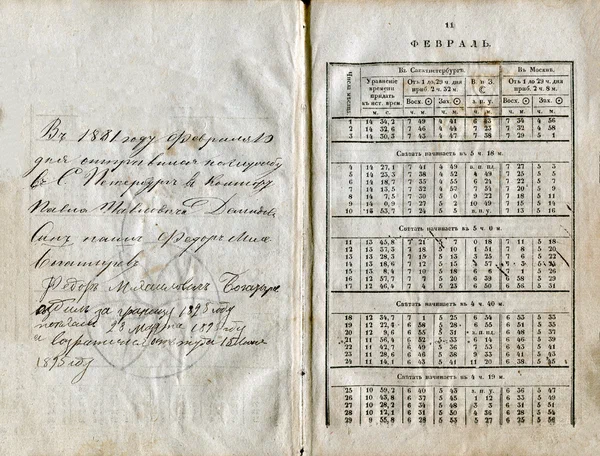 Въ 1881 году Февраля 10
дня отправился на службу
въ С. Петербургъ въ Контору
Павла Павловича Демидова
Сынъ нашъ Федоръ Мих
Федоръ Михайловичъ
за границу 1895 году
23 марта 1895 году
1895 году
11
ФЕВРАЛЬ.
Числа мѣсяца.
Уравненіе времени придать къ ист. врем.
Въ Санктпетербургѣ.
Отъ 1 до 29 ч. дня приб. 2 ч. 32 м.
Восх. Зах.
В. и З.
з. п. у.
Въ Москвѣ.
Отъ 1 до 29 ч. дня приб. 2 ч. 8 м.
Восх. Зах.
м. с. ч. м. ч. м. ч. м. ч. м. ч. м.
1 14 34,2 7 49 4 41 6 23 7 34 4 56
2 14 32,6 7 46 4 44 7 23 7 32 4 58
3 14 30,3 7 43 4 47 7 58 7 29 5 1
Свѣтать начинаетъ въ 5 ч. 18 м.
4 14 27,1 7 41 4 49 н. п. у. 7 27 5 3
5 14 23,3 7 38 4 52 4 49 7 25 5 5
6 14 18,7 7 35 4 55 6 24 7 22 5 7
7 14 13,5 7 32 4 57 7 54 7 20 5 9
8 14 7,5 7 30 5 0 9 22 7 18 5 11
9 14 0,9 7 27 5 2 10 49 7 15 5 14
10 13 53,7 7 24 5 5 п. п. у. 7 13 5 16
Свѣтать начинаетъ въ 5 ч. 0 м.
11 13 45,8 7 21 5 7 0 18 7 11 5 18
12 13 37,3 7 18 5 10 1 51 7 8 5 20
13 13 28,3 7 15 5 13 3 25 7 6 5 22
14 13 18,6 7 12 5 15 5 3 7 3 5 24
15 13 8,4 7 10 5 18 6 6 7 1 5 26
16 12 57,7 7 7 5 20 6 39 6 58 5 29
17 12 46,4 7 4 5 23 6 50 6 56 5 31
Свѣтать начинаетъ въ 4 ч. 40 м.
18 12 34,7 7 1 5 25 6 54 6 53 5 33
19 12 22,4 6 58 5 28 6 55 6 51 5 35
20 12 9,6 6 55 5 31 п. п. у. 6 48 5 37
21 11 56,4 6 52 5 33 6 14 6 46 5 39
22 11 42,7 6 49 5 36 7 53 6 43 5 41
23 11 28,6 6 46 5 38 9 33 6 41 5 43
24 11 14,1 6 43 5 41 11 13 6 38 5 45
Свѣтать начинаетъ въ 4 ч. 19 м.
25 10 59,2 6 40 5 43 з. п. у. 6 36 5 47
26 10 43,8 6 37 5 45 1 12 6 33 5 49
27 10 28,2 6 34 5 48 3 3 6 31 5 51
28 10 12,1 6 31 5 50 4 36 6 28 5 54
29 9 55,8 6 28 5 53 5 27 6 26 5 56